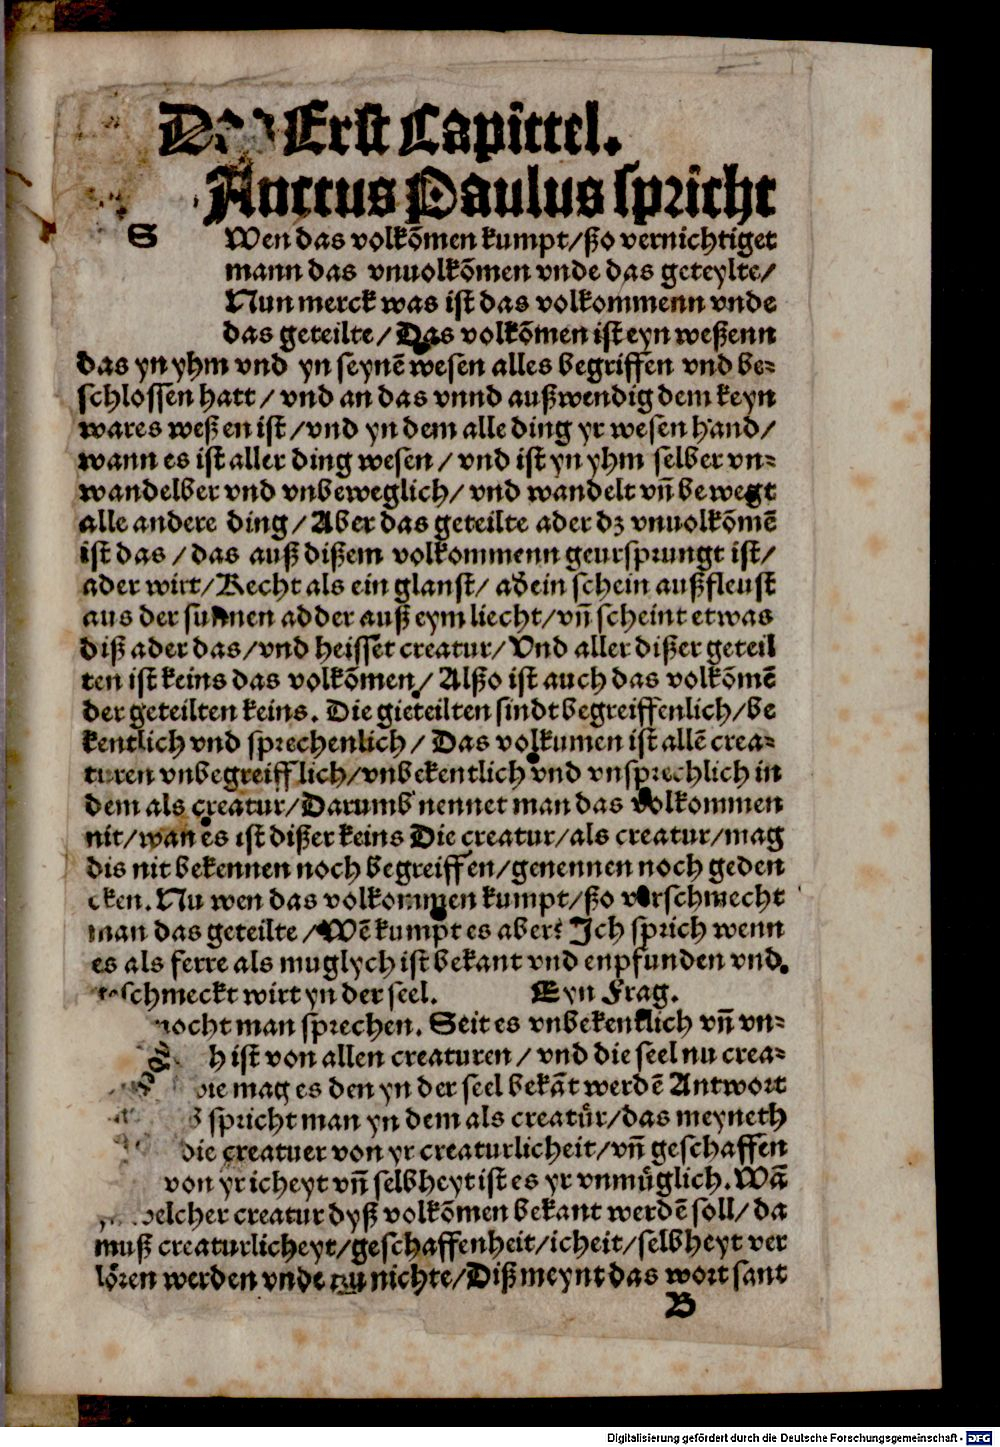 Erst Capittel.
Anctus Paulus spricht
S Wen das volkōmen kumpt/ßo vernichtiget
mann das vnuolkōmen vnde das geteylte/
Nun merck was ist das volkommenn vnde
das geteilte/ Das volkōmen ist eyn weßenn
das yn yhm vnd yn seynē wesen alles begriffen vnd be⸗
schlossen hatt / vnd an das vnnd außwendig dem keyn
wares weß en ist /vnd yn dem alle ding yr wesen hand/
wann es ist aller ding wesen / vnd ist yn yhm selber vn⸗
wandelber vnd vnbeweglich/ vnd wandelt vñ bewegt
alle andere ding / Aber das geteilte ader dz vnuolkōmē
ist das / das auß dißem volkommenn geursprungt ist/
ader wirt/ Recht als ein glanst/ ad̕ ein schein außfleust
aus der sunnen adder auß eym liecht/ vñ scheint etwas
diß ader das/vnd heisset creatur/ Vnd aller dißer geteil
ten ist keins das volkōmen/ Alßo ist auch das volkōmē
der geteilten keins. Die gieteilten sindt begreiffenlich/be
kentlich vnd sprechenlich / Das volkumen ist allē crea⸗
turen vnbegreifflich/vnbekentlich vnd vnsprechlich in
dem als creatur/Darumb nennet man das volkommen
nit/wan es ist dißer keins Die creatur/als creatur/mag
dis nit bekennen noch begreiffen/genennen noch geden
cken. Nu wen das volkommen kumpt/ßo verschmecht
man das geteilte /Wē kumpt es aber? Ich sprich wenn
es als ferre als muglych ist bekant vnd enpfunden vnd.
geschmeckt wirt yn der seel. Eyn Frag.
mocht man sprechen. Seit es vnbekentlich vñ vn⸗
h ist von allen creaturen / vnd die seel nu crea⸗
wie mag es den yn der seel bekāt werdē Antwort
spricht man yn dem als creatůr/das meyneth
die creatuer von yr creaturlicheit/vñ geschaffen
von yr icheyt vñ selbheyt ist es yr vnmůglich. Wā
welcher creatur dyß volkōmen bekant werdē soll/ da
muß creaturlicheyt/geschaffenheit/icheit/selbheyt ver
lören werden vnde zu nichte/Diß meynt das wort sant
B
Digitalisierung gefördert durch die Deutsche Forschungsgemeinschaft - DFG